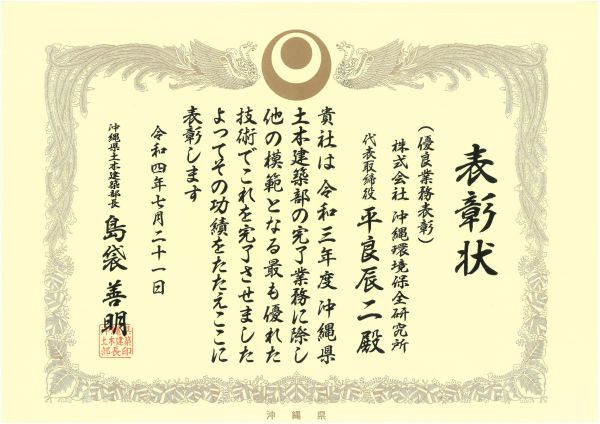 表彰状
(優良業務表彰)
株式会社 沖縄環境保全研究所
代表取締役 平良辰二殿
貴社は令和三年度沖縄県
土木建築部の完了業務に際し
他の模範となる最も優れた
技術でこれを完了させました
よってその功績をたたえここに
表彰します
令和四年七月二十一日
沖縄県土木建築部長 島袋善明
沖縄県
土木建築
部長印
沖縄県